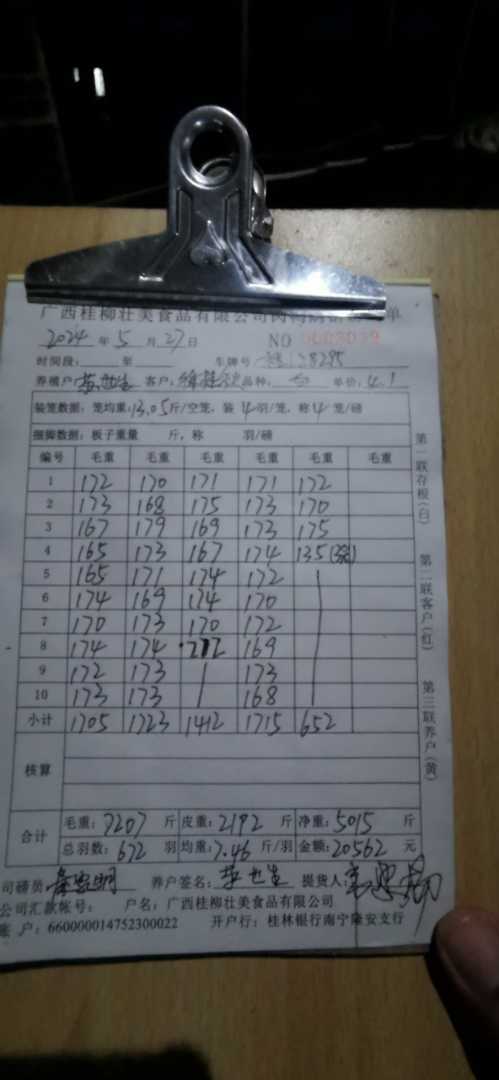 广西桂柳壮美食品有限公司 单
2024 年 5 月 27 日 NO 0003039
时间段: 至 车牌号:
养殖户: 客户: 品种: 单价: 4.1
装笼数据: 笼均重: 13.05 斤/空笼, 装 4 羽/笼, 称 4 笼/磅
捆脚数据: 板子重量 斤, 称 羽/磅
编号 毛重 毛重 毛重 毛重 毛重 毛重
1 172 170 171 171 172
2 173 168 175 173 170
3 167 179 169 173 175
4 165 173 167 174 135
5 165 171 174 172
6 174 169 174 170
7 170 173 170 172
8 174 174 212 169
9 172 173 173
10 173 173 168
小计 1705 1723 1412 1715 652
核算
合计 毛重: 7207 斤 皮重: 2192 斤 净重: 5015 斤
总羽数: 672 羽 均重: 7.46 斤/羽 金额: 20562 元
司磅员: 养户签名: 提货人:
公司汇款帐号: 户名: 广西桂柳壮美食品有限公司
账 户: 660000014752300022 开户行: 桂林银行南宁隆安支行
第一联存根(白)
第二联客户(红)
第三联养户(黄)